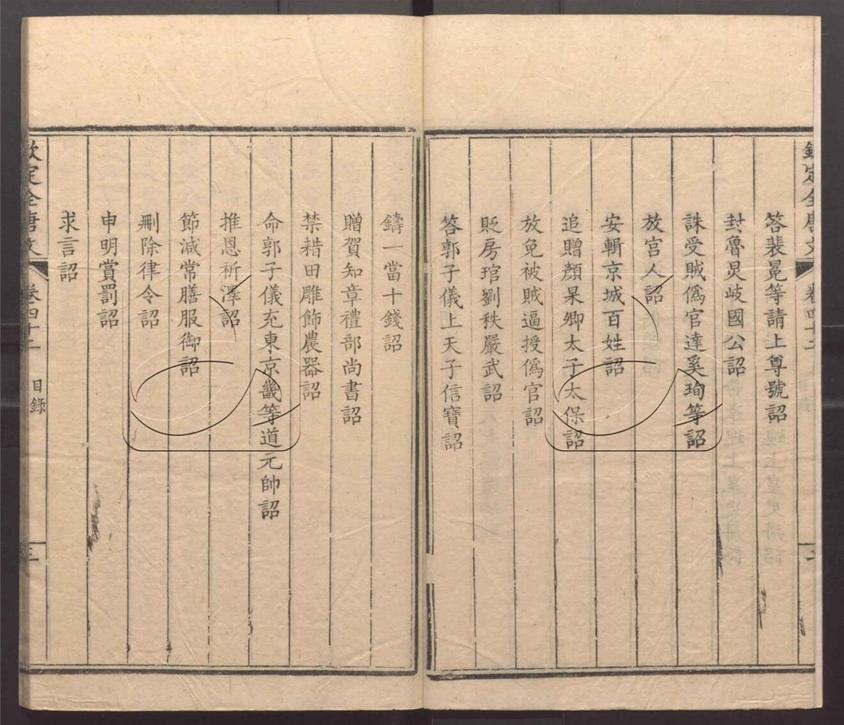 欽定全唐文
卷四十二
答裴冕等請上尊號詔
封魯炅岐國公詔
誅受賊僞官達奚珣等詔
放宮人詔
安輯京城百姓詔
追贈顏杲卿太子太保詔
放免被賊逼授僞官詔
貶房琯劉秩嚴武詔
答郭子儀上天子信寶詔
鑄一當十錢詔
贈賀知章禮部尚書詔
禁耤田雕飾農器詔
命郭子儀充東京畿等道元帥詔
推恩祈澤詔
節減常膳服御詔
刪除律令詔
申明賞罰詔
求言詔
欽定全唐文
卷四十二
目錄
三